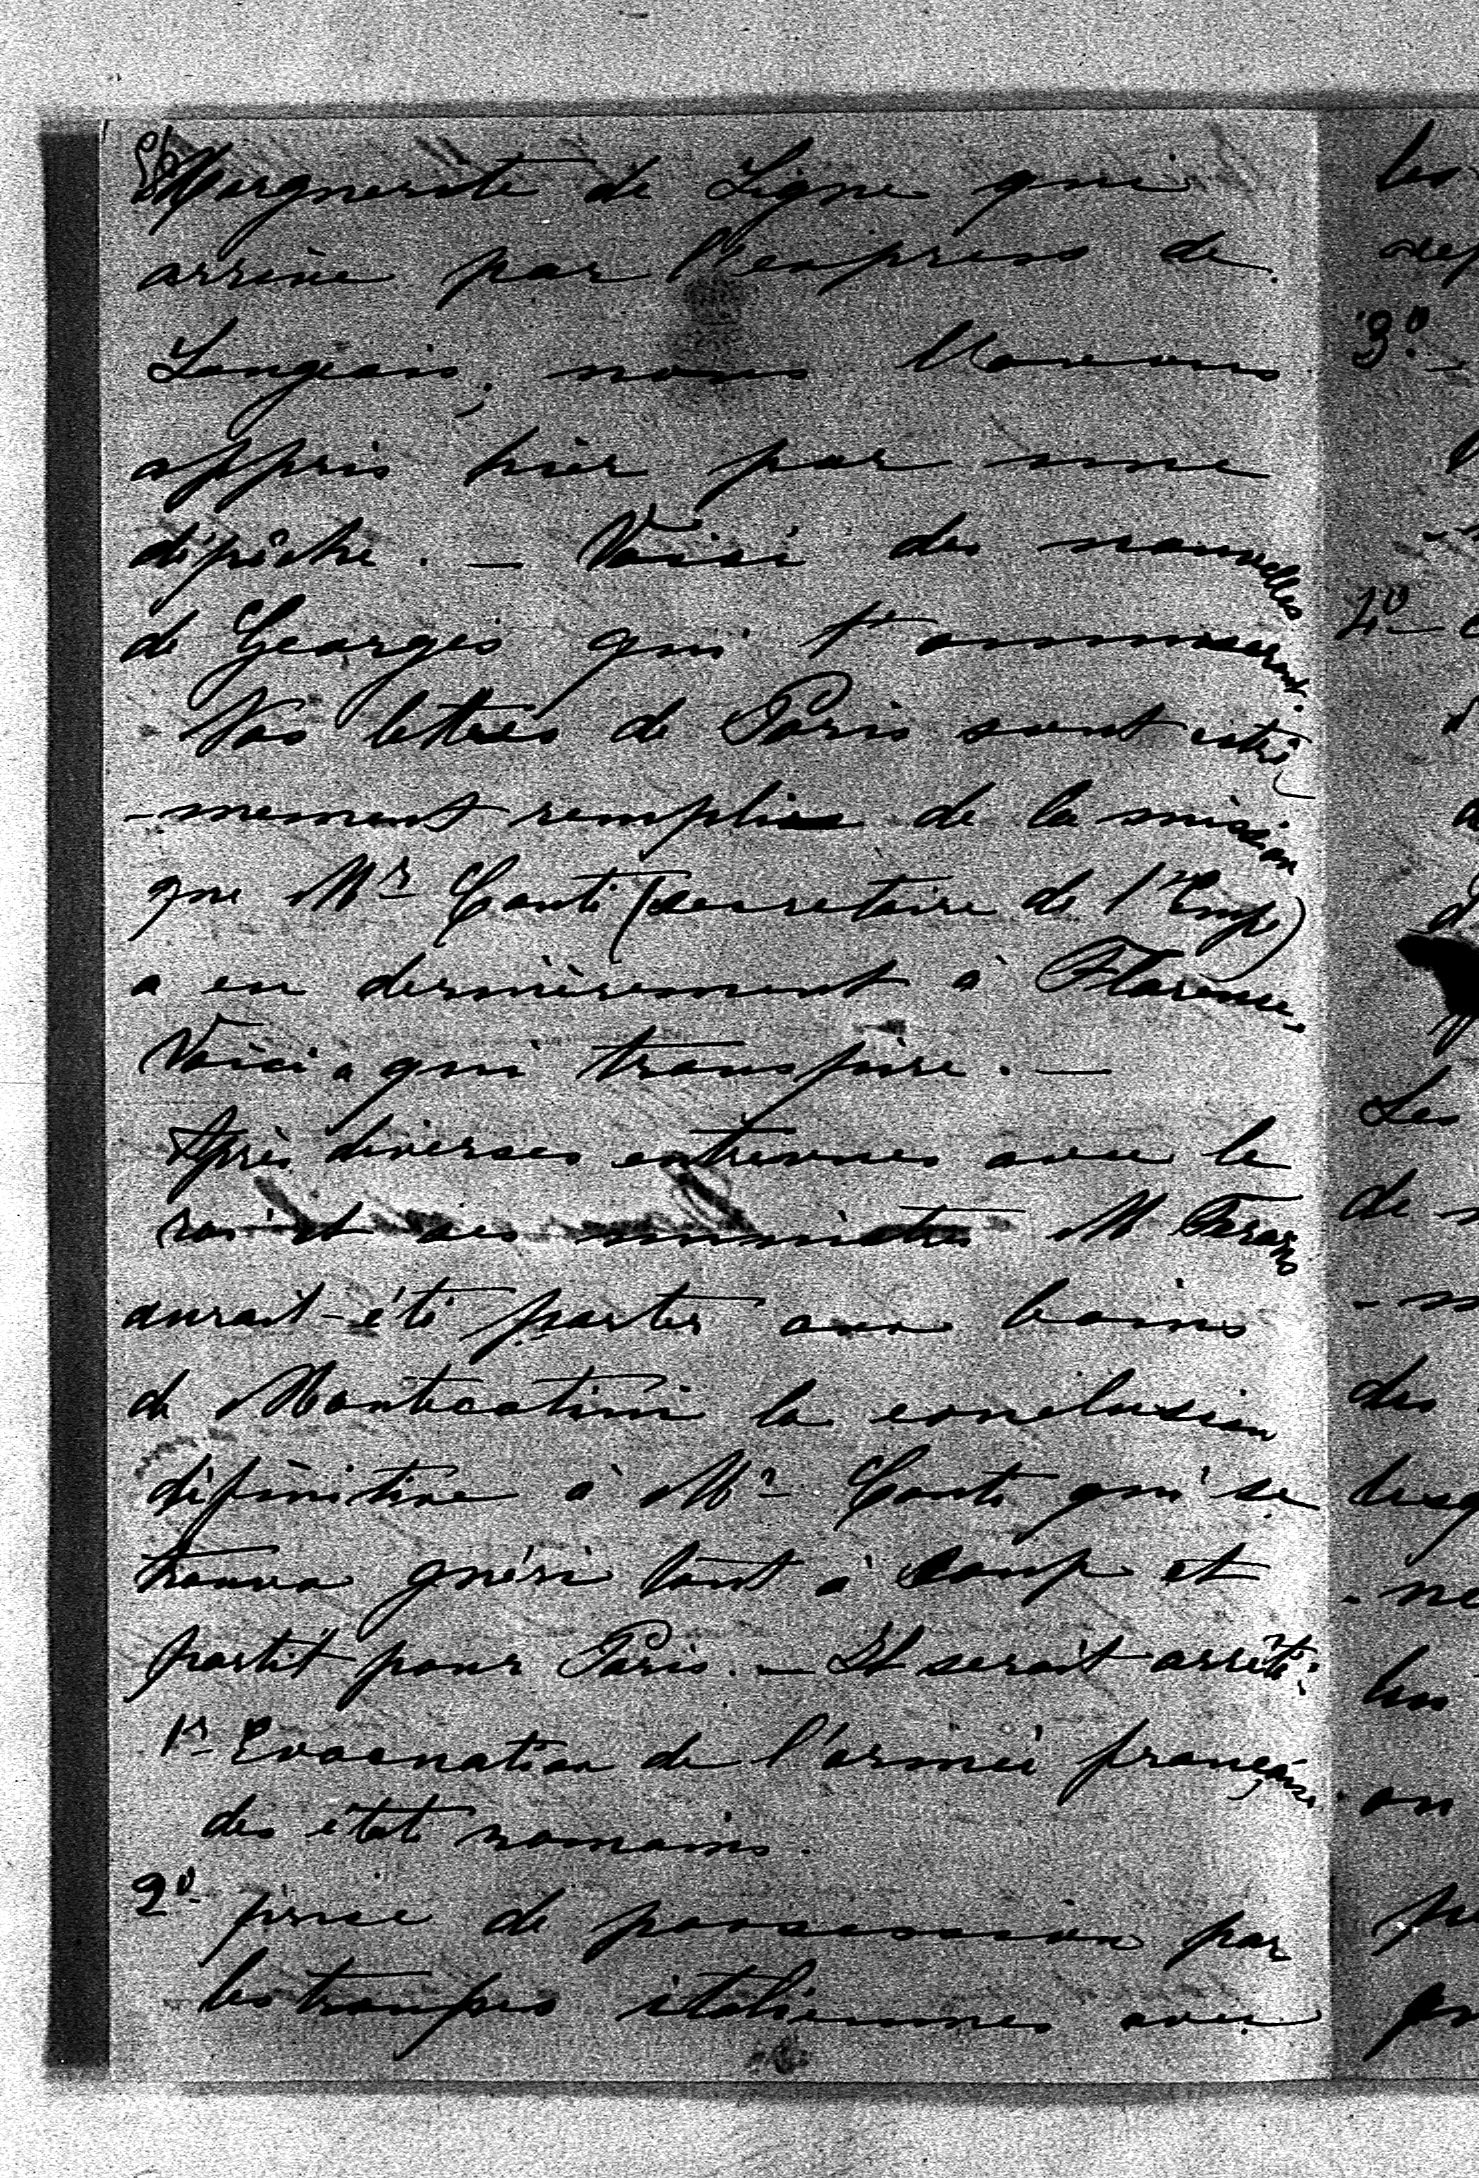 Marguerite de Ligne qui
arrive par l'express de
Langeais; nous l'avons
appris hier par une
dépêche. — Voici des nouvelles
de Georges qui t'amuseront.
Nos lettres de Paris sont
-mement remplies de la mission
que Mr Conti (secretaire de l'Emp)
a eu dernièrement à Florence.
Voici qui transpire. —
Après diverses entrevues avec le
roi et ses ministres M
aurait-été porter aux bains
de Montecatini la conclusion
définitive à Mr Conti qui se
trouva guéri tout à coup et
partit pour Paris. — Il serait arrêté:
1r Evacuation de l'armée française
des états romains.
2o prise de possession par
les troupes italiennes avec
les
3o
4o
Les
de
des
-ne
un
on